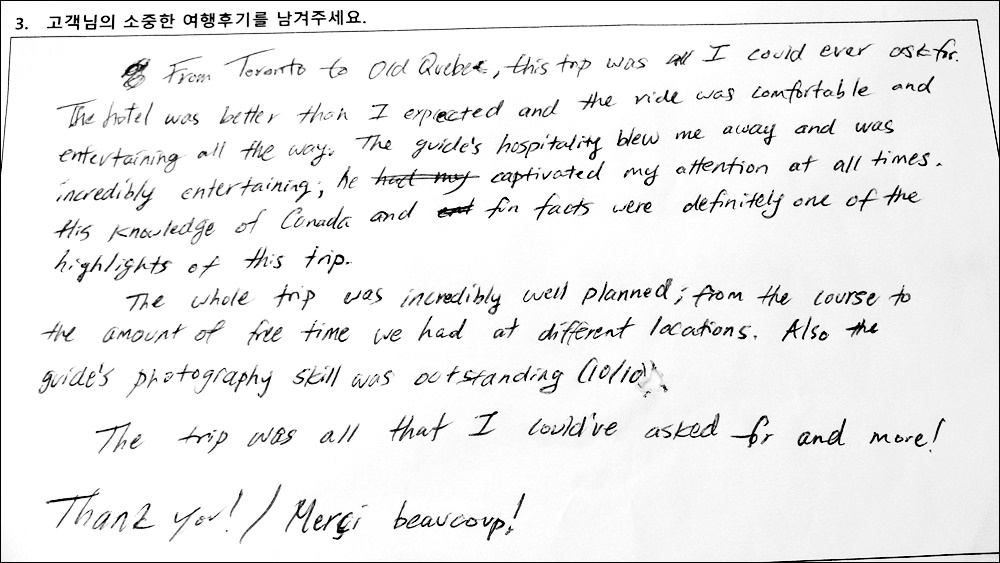 3. 고객님의 소중한 여행후기를 남겨주세요.
From Toronto to Old Quebec, this trip was all I could ever ask for.
The hotel was better than I expected and the ride was comfortable and
entertaining all the way. The guide's hospitality blew me away and was
incredibly entertaining; he had my captivated my attention at all times.
His knowledge of Canada and fun facts were definitely one of the
highlights of this trip.
The whole trip was incredibly well planned; from the course to
the amount of free time we had at different locations. Also the
guide's photography skill was outstanding (10/10)
The trip was all that I could've asked for and more!
Thank you! / Merçi beaucoup!